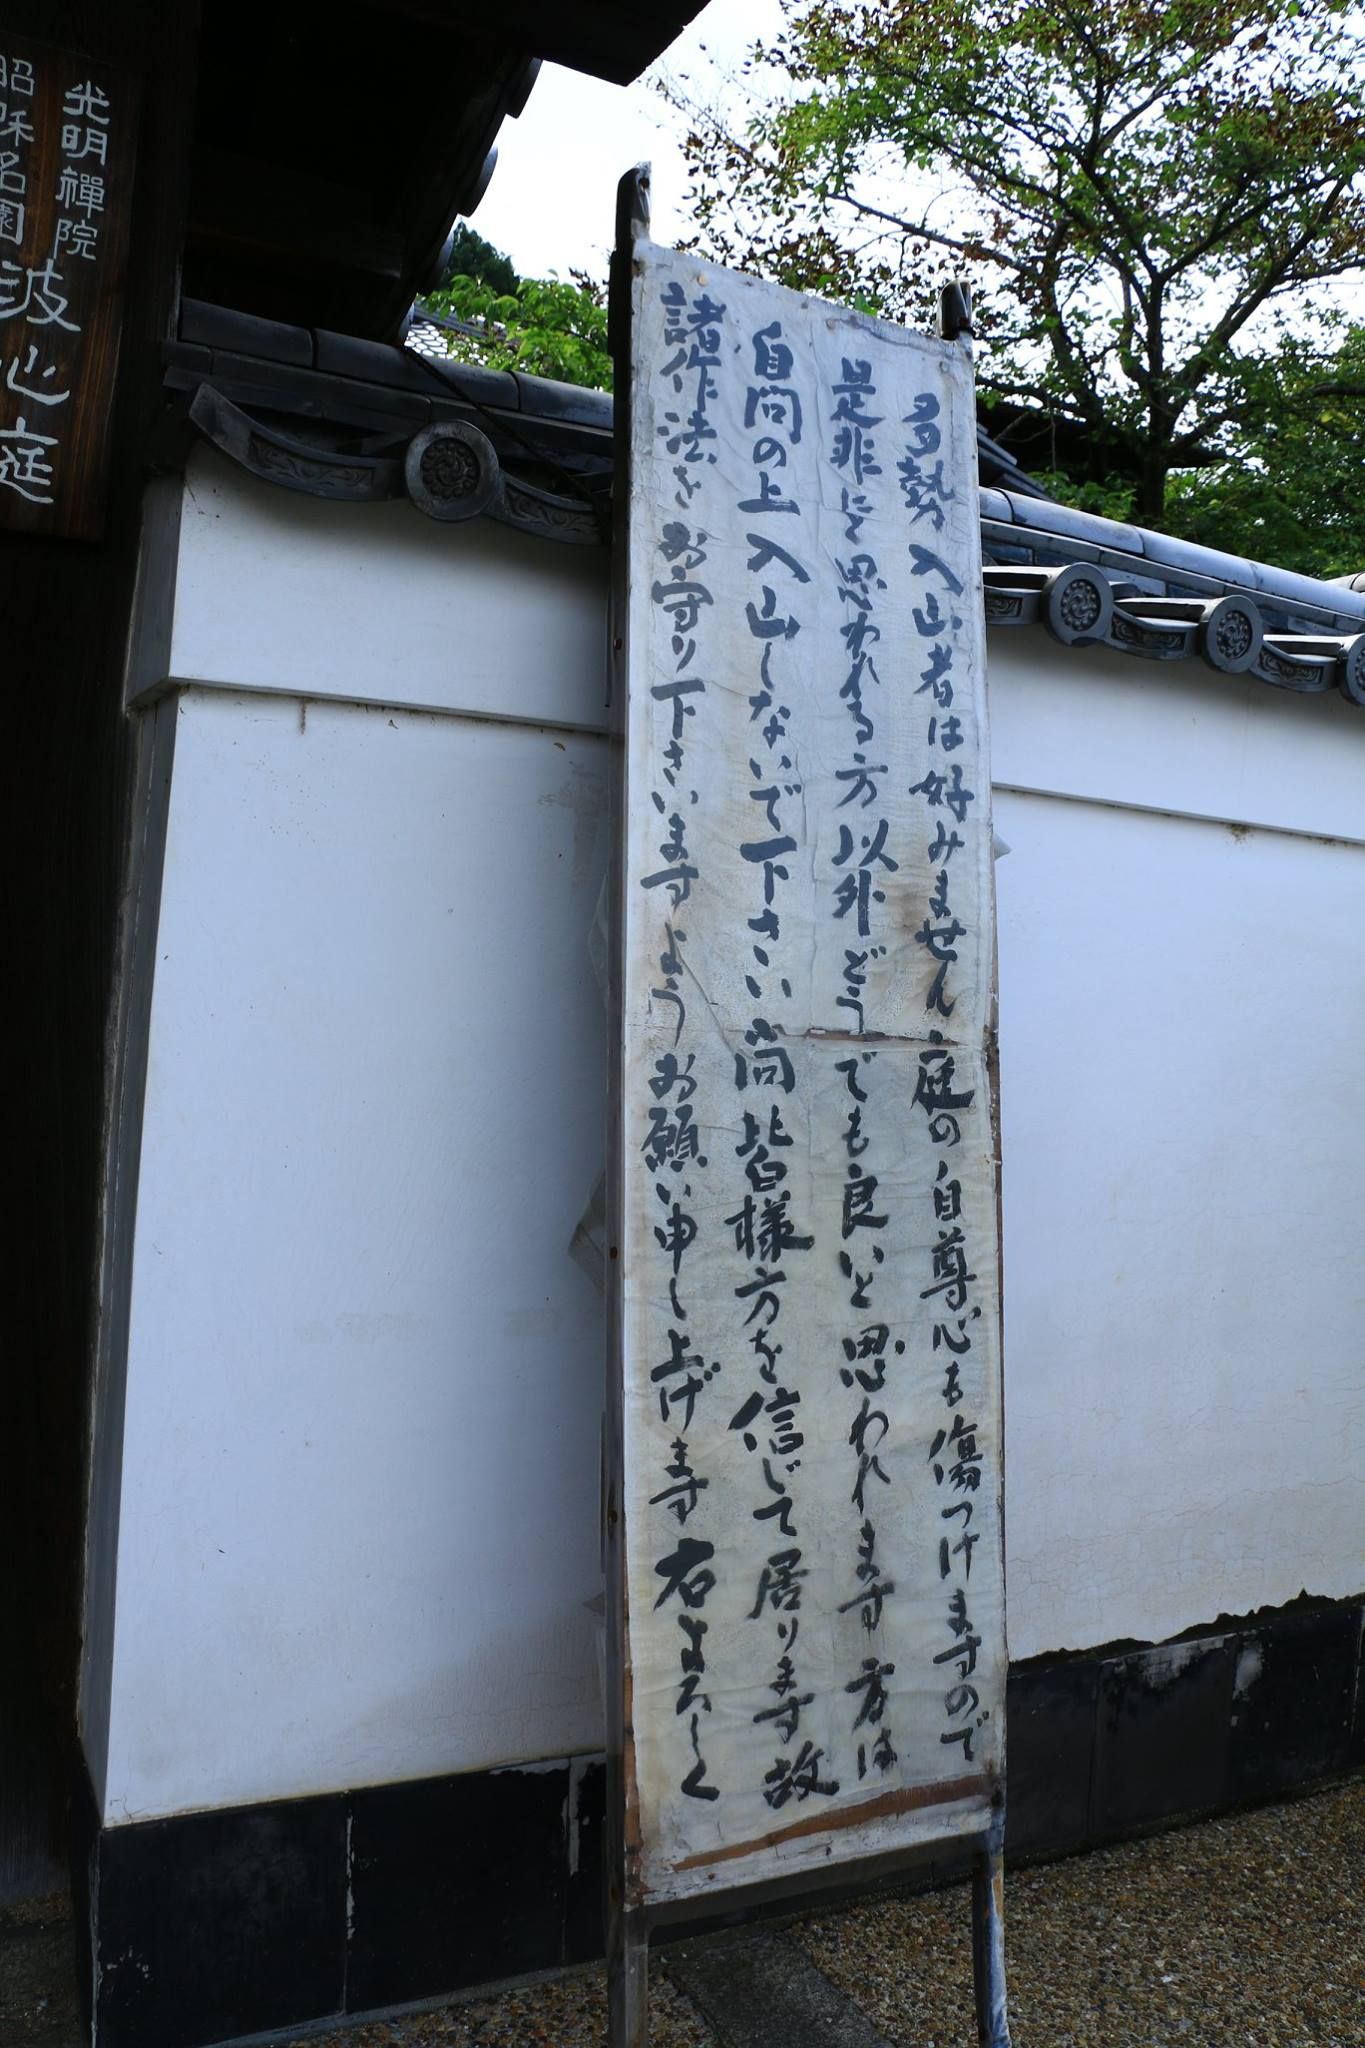 多勢入山者は好みません庭の自尊心も傷つけますので
是非にと思われる方以外どうでも良いと思われます方は
自問の上入山しないで下さい尚皆様方を信じて居ります故
諸作法をお守り下さいますようお願い申し上げます右よろしく
光明禅院
昭和名園波心庭